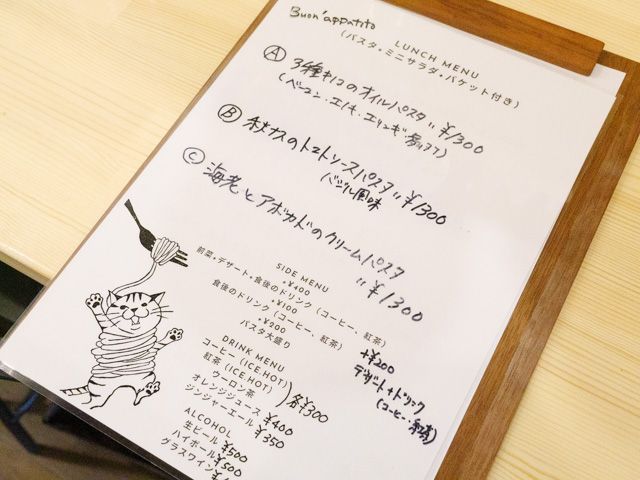 Buon'appatito
LUNCH MENU
(パスタ・ミニサラダ・バケット付き)
Ⓐ 3種キノコのオイルパスタ 〃 ¥1300
(ベーコン・エノキ・エリンギ
Ⓑ 秋ナスのトマトソースパスタ 〃 ¥1300
バジル風味
Ⓒ 海老とアボカドのクリームパスタ
〃 ¥1300
SIDE MENU
・¥400
前菜・デザート・食後のドリンク (コーヒー、紅茶)
・¥100
食後のドリンク (コーヒー、紅茶)
・¥200
パスタ大盛り
+¥200
デザート+ドリンク
(コーヒー・紅茶)
DRINK MENU
コーヒー (ICE.HOT)
紅茶 (ICE.HOT)
ウーロン茶
各¥300
オレンジジュース ¥400
ジンジャーエール ¥350
ALCOHOL
生ビール ¥500
ハイボール ¥500
グラスワイン